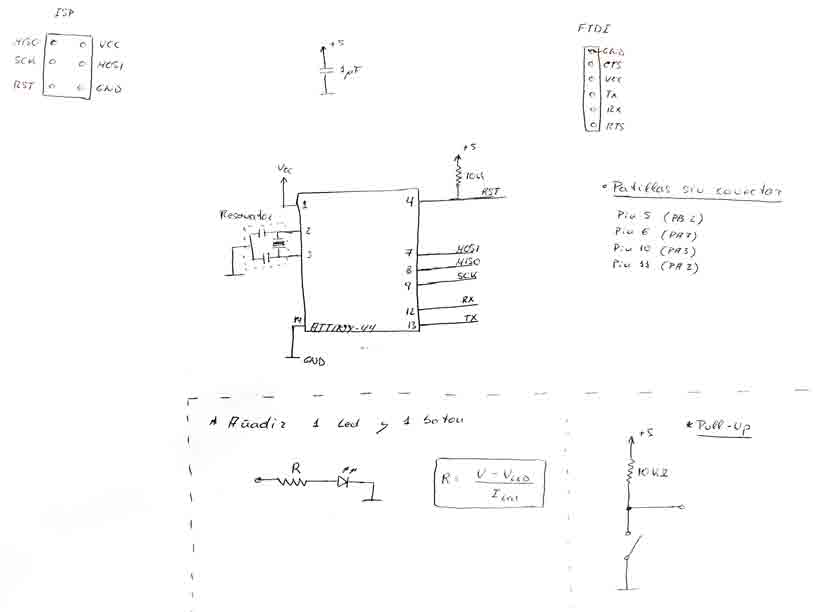 ISP
MISO
VCC
SCK
MOSI
RST
GND
+5
1µF
FTDI
GND
CTS
VCC
Tx
Rx
RTS
Vcc
Resonator
1
2
3
14
ATTINY-44
GND
+5
10k
4
RST
7
MOSI
8
MISO
9
SCK
12
RX
13
TX
• Patillas sin conector
Pin 5 (PB2)
Pin 6 (PA7)
Pin 10 (PA3)
Pin 11 (PA2)
* Añadir 1 Led y 1 boton
R
R = V - VLED
ILED
* Pull-Up
+5
10 kΩ